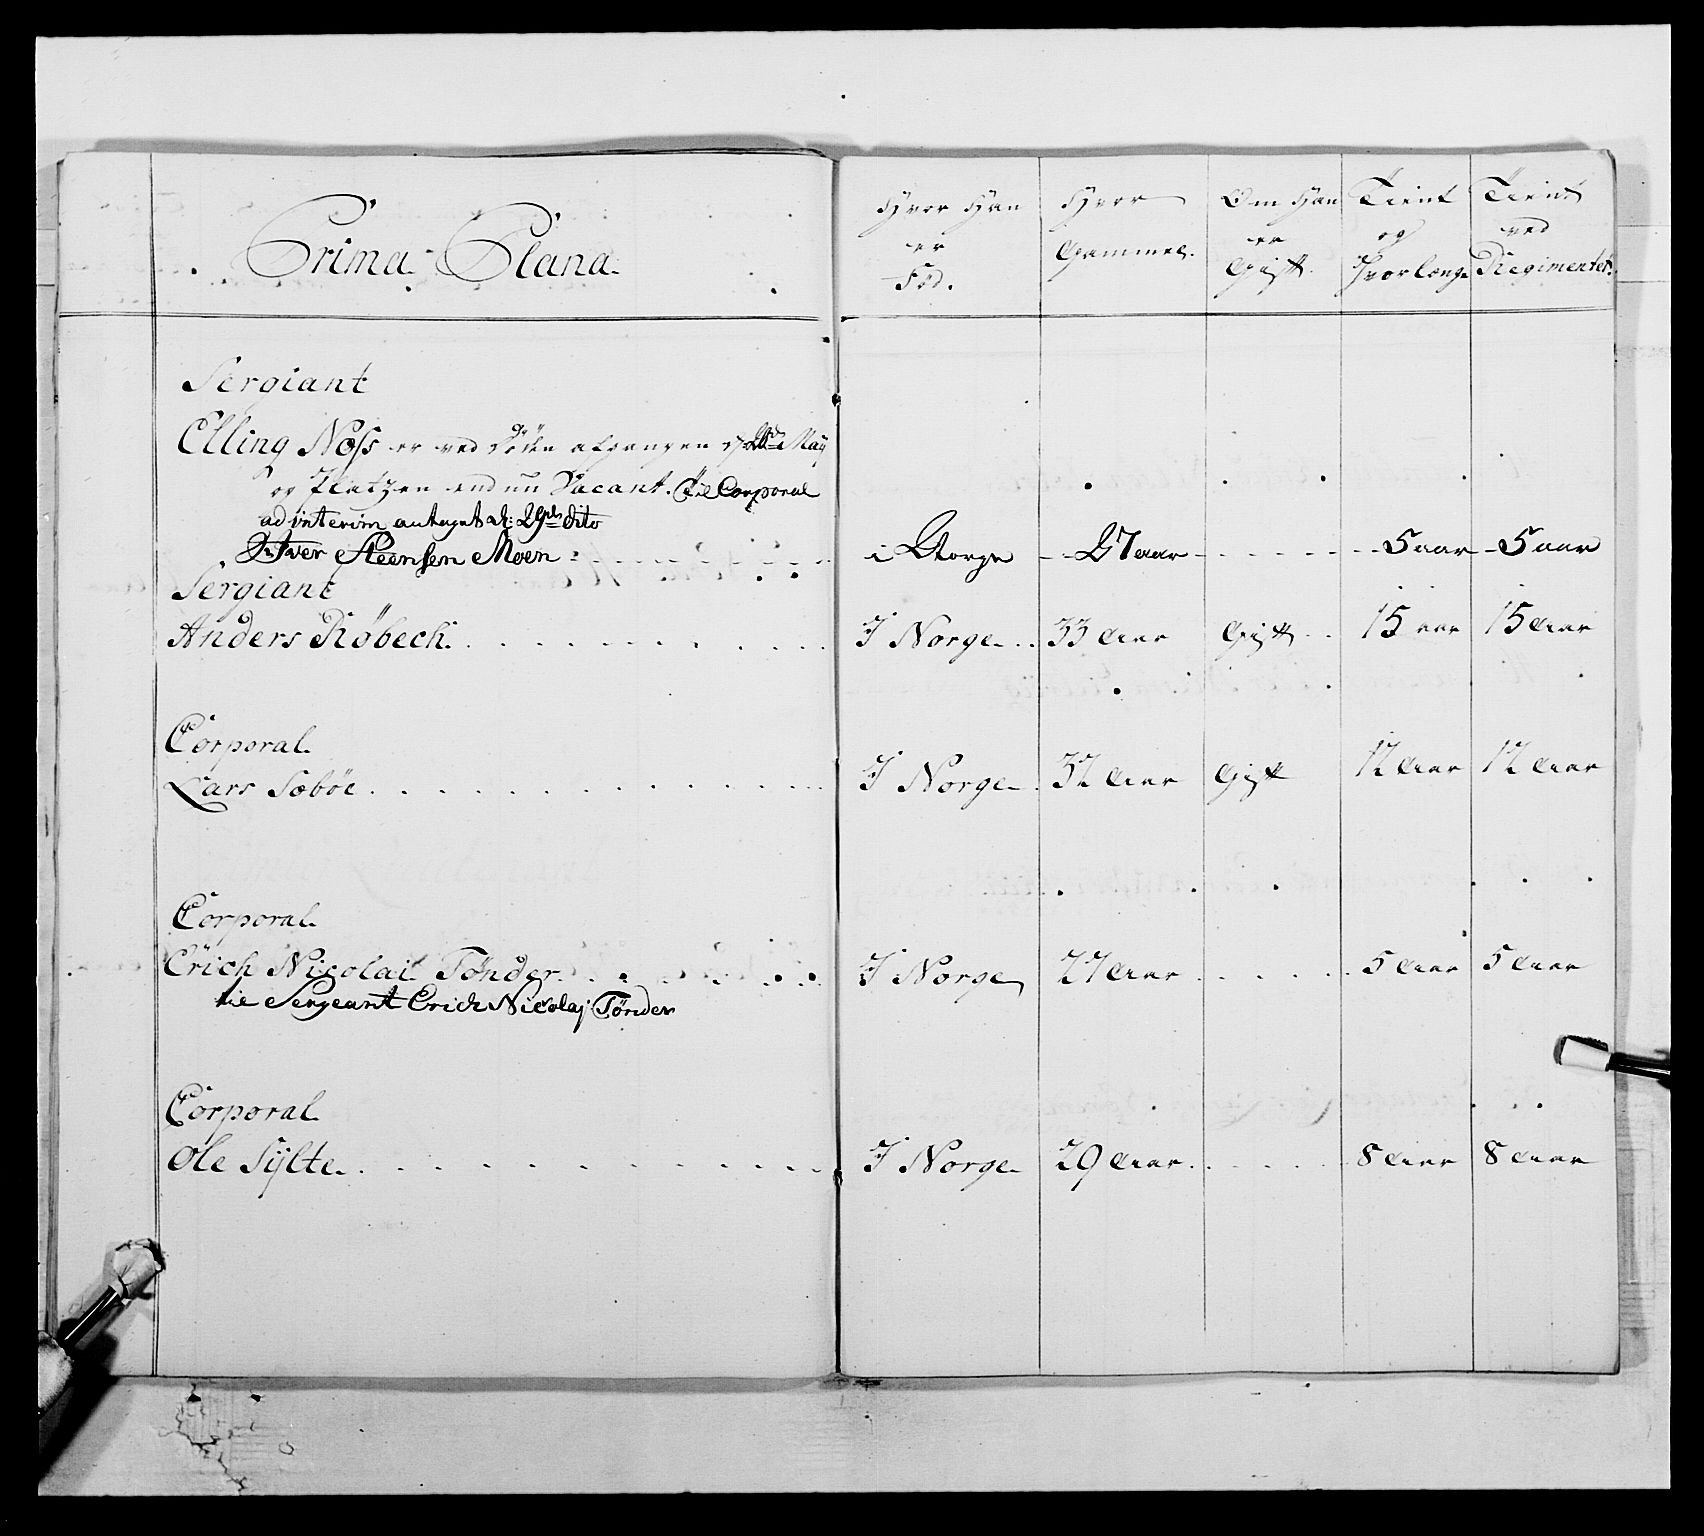 Prima Plana.
Hvor Han er Fød.
Hvor Gammel.
Om Han er Gift.
Tient og Hvorlænge
Tient ved Regimentet.
Sergiant
Elling Noss er ved Døden afgangen May
og Platzen endnu Vacant. til Corporal
ad interim antaget d: 29de dito
Iver Steensen Moen i Norge 27 aar 5 aar 5 aar
Sergiant
Anders Røbech. I Norge 33 Aar Gift 15 aar 15 Aar
Corporal
Lars Sæbøe I Norge 32 Aar Gift 12 Aar 12 Aar
Corporal
Erich Nicolai Tønder I Norge 27 Aar 5 Aar 5 Aar
til Sergeant Erich Nicolaj Tønder
Corporal
Ole Sylte I Norge 29 Aar 8 Aar 8 Aar